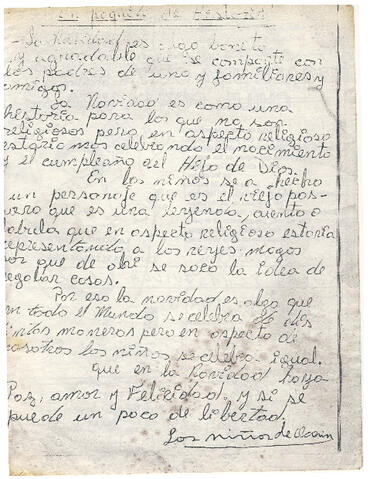 un pequeño de historia
- La Navidad es algo bonito
y agradable que se comparte con
los padres de uno y familiares y
amigos.
La Navidad es como una
historia para los que no son
religiosos pero en aspecto religioso
estaria mos celebrando el nacimiento
y el cumpleaño del Hijo de Dios.
En los niños se a hecho
un personaje que es el viejo pas-
cuero que es una leyenda, cuento o
fabula que en aspecto religioso estaria
representando a los reyes magos
por que de ahi se saco la idea de
regalar cosas.
Por eso la navidad es algo que
en todo el Mundo se celebra de dis
tintas maneras pero en aspecto de
nosotros los niños se celebra igual.
que en la Navidad haya
Paz, amor y Felicidad. y si se
puede un poco de libertad.
Los niños de